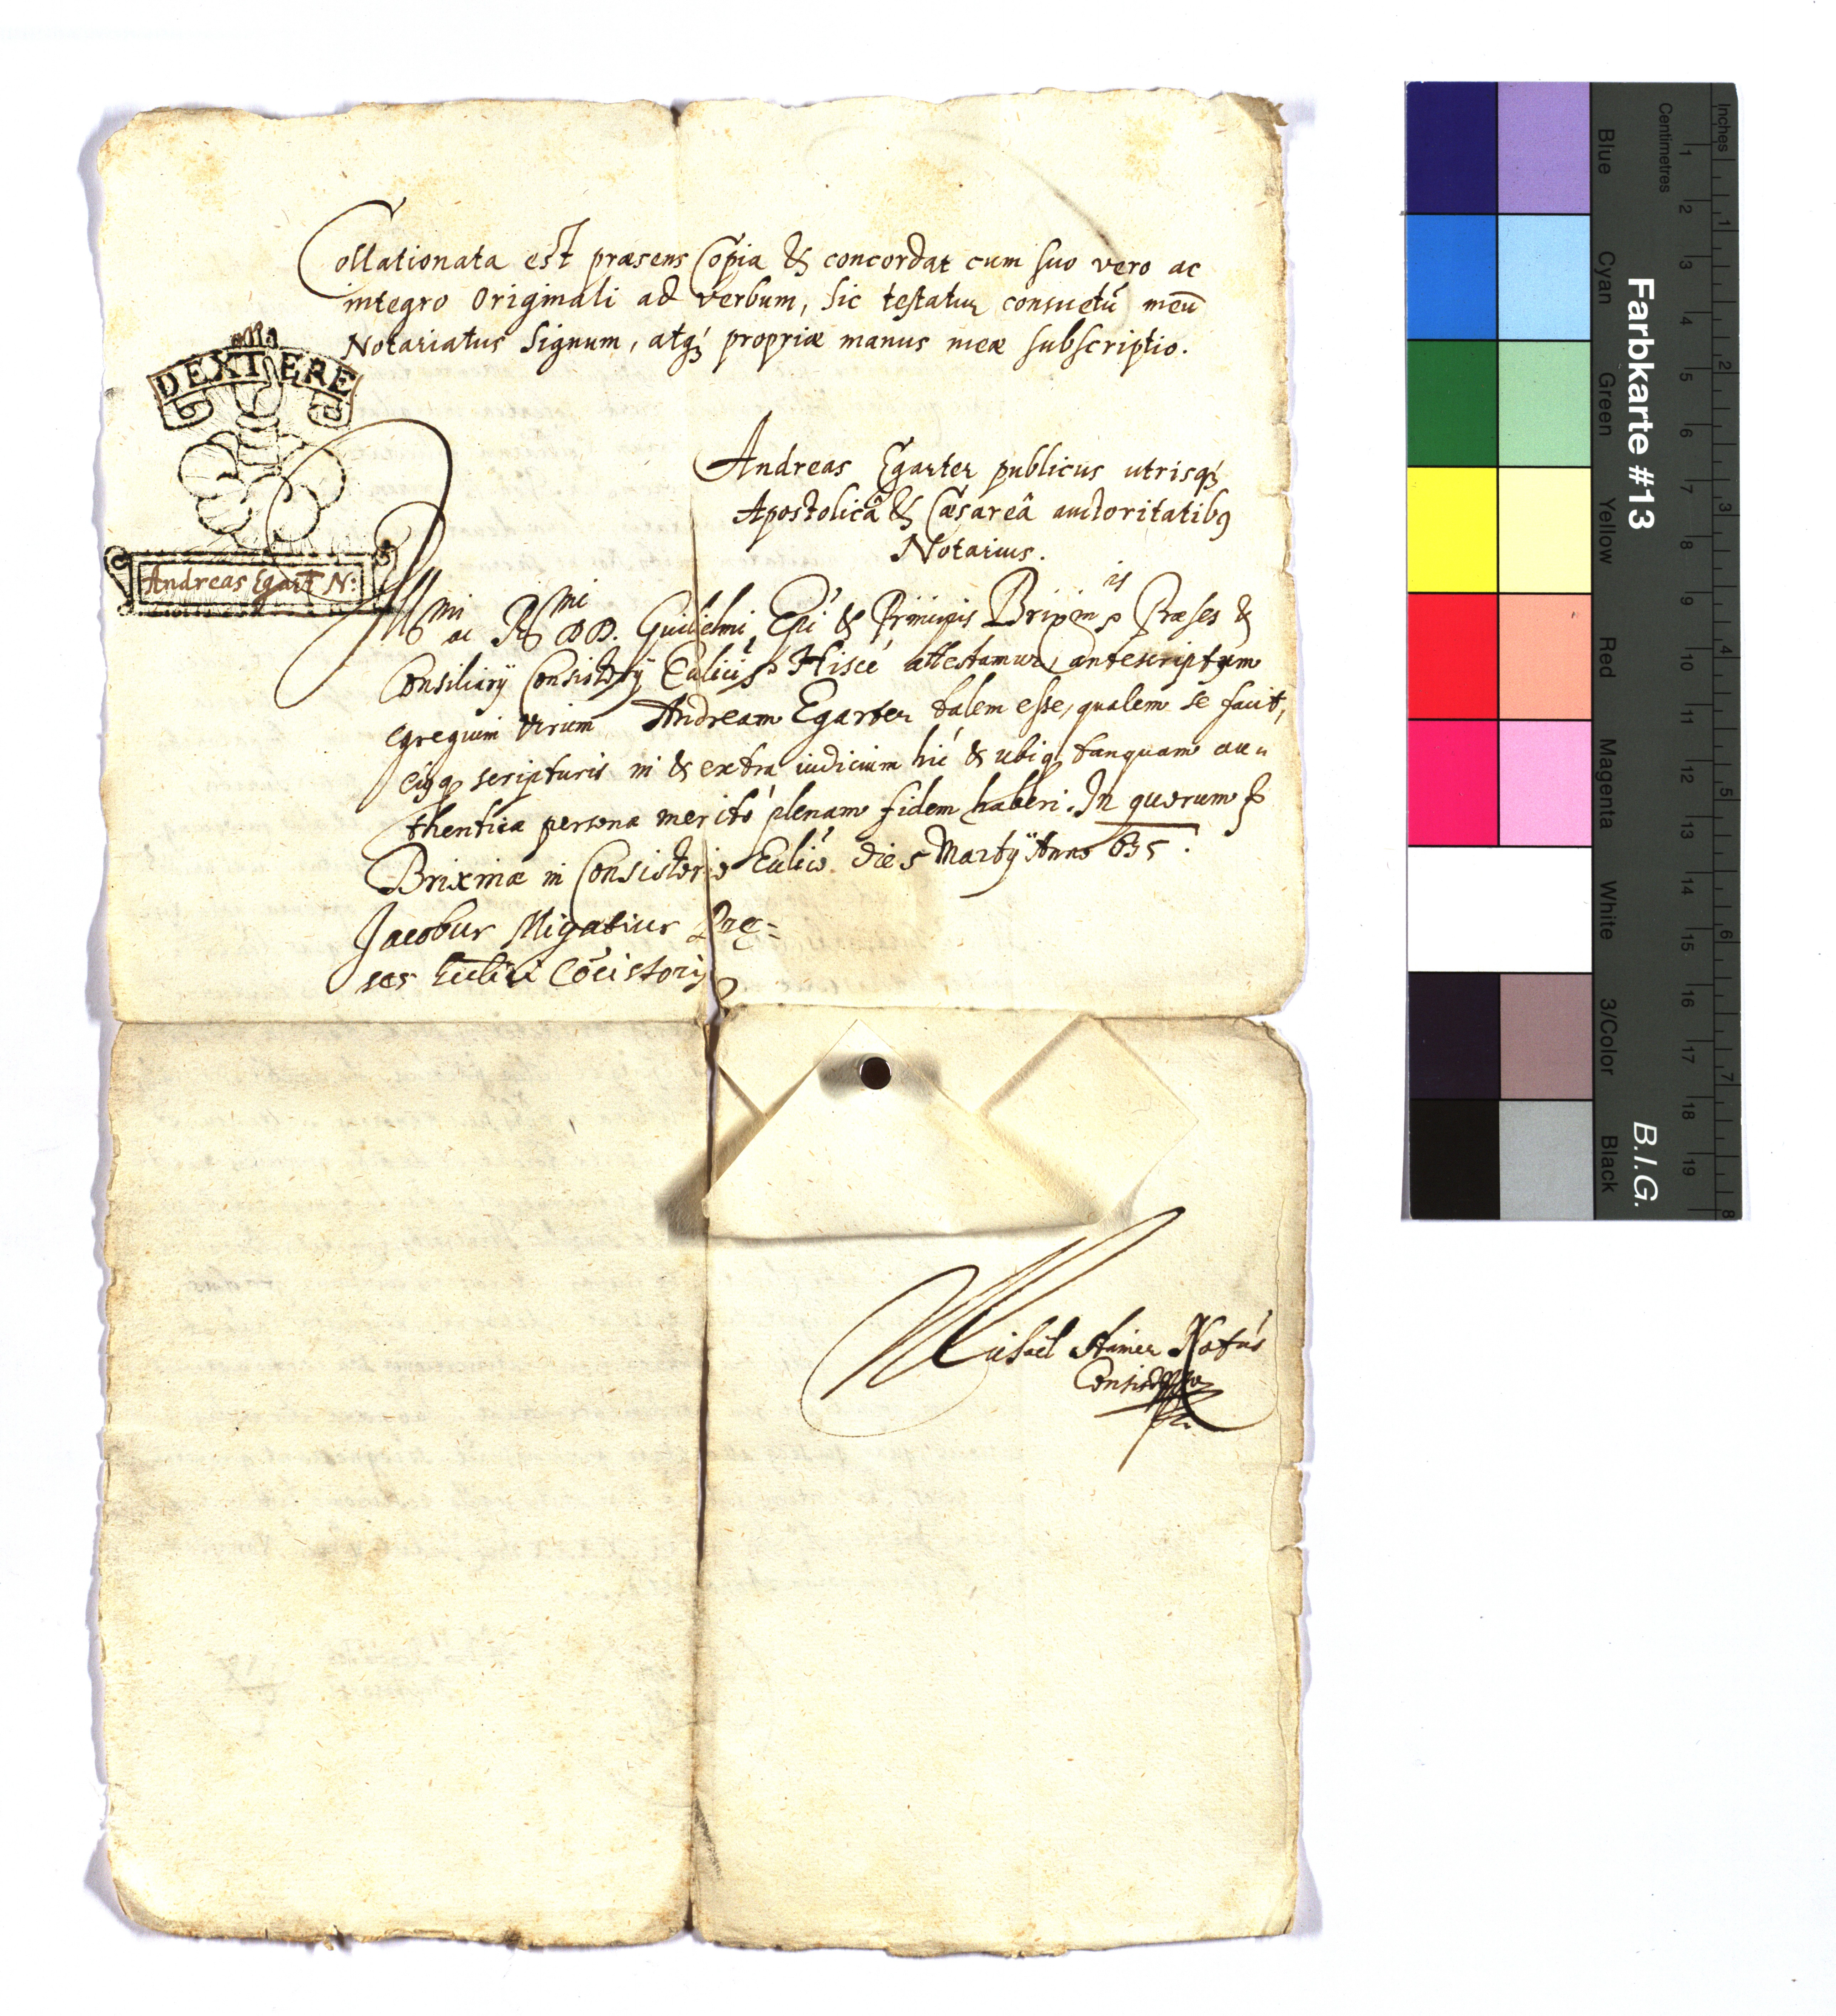 Collationata est præsens Copia & concordat cum suo vero ac
integro Originali ad verbum, sic testatur consuetũ meũ
Notariatus Signum, atq₃ propriæ manus meæ subscriptio.
DEXTERE
Andreas Egart N:
Andreas Egarter publicus utrisq₃
Apostolicâ & Cæsareâ auctoritatibꝰ
Notarius.
Illmi ac Rmi DD. Guilielmi Epi & Principis Brixinis Præses &
Consiliarij Consistorij Eclici Hisce attestamur, antescriptum
egregium virum Andream Egarter talem esse, qualem se facit,
eiusq scripturis in & extra iudicium hic & ubiq tanquam au„
thentica persona merito plenam fidem haberi. In quorum
Brixinæ in Consistorio Eclico. die 5 Martij Anno 635.
Jacobus Migatius Præ=
ses Ecclici Cõcistorij
Michael Notus
Blue
Cyan
Green
Yellow
Red
Magenta
White
3/Color
Black
Farbkarte #13
B.I.G.
Centimetres
1 2 3 4 5 6 7 8 9 10 11 12 13 14 15 16 17 18 19
Inches
1 2 3 4 5 6 7 8